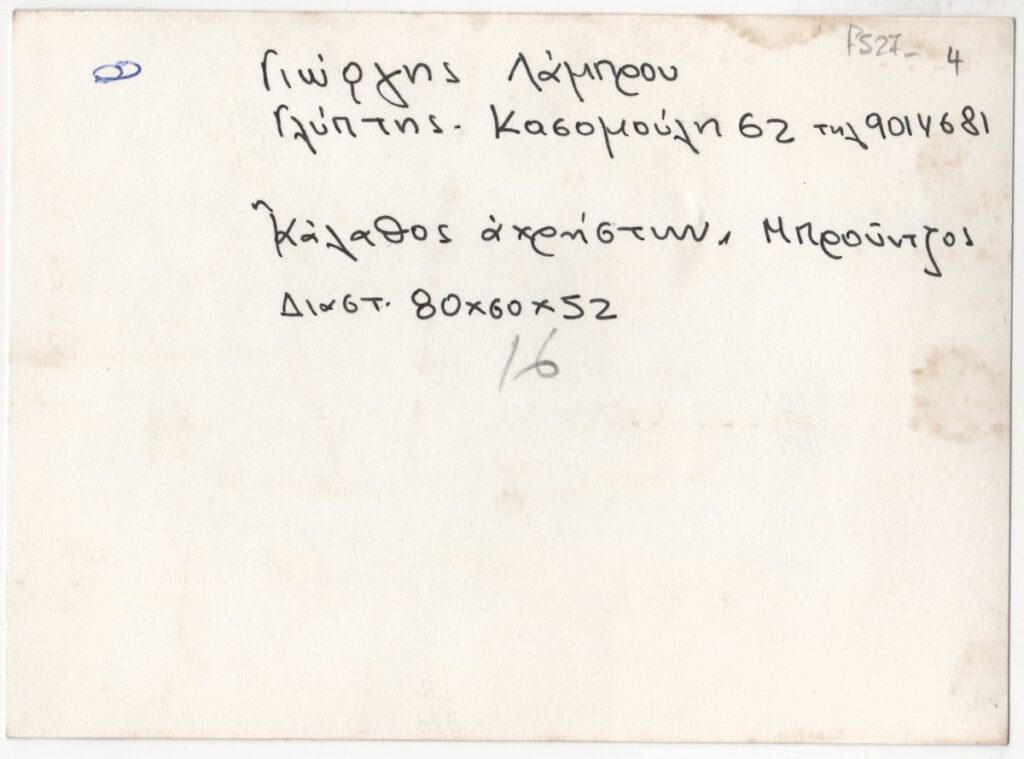 PS27- 4
Γιώργης Λάμπρου
Γλύπτης. Κασομούλη 62 τηλ 9014681
"Κάλαθος ἀχρήστων" Μπρούντζος
Διαστ. 80x60x52
16